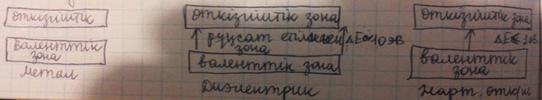 өткізгіштік
валенттік
зона
Метал
өткізгіштік зона
руұсат етілмеген
зона
ΔE≈10эВ
валенттік зона
Диэлектрик
өткізгіштік зона
ΔE
валенттік
зона
Жарт. өткізгіш